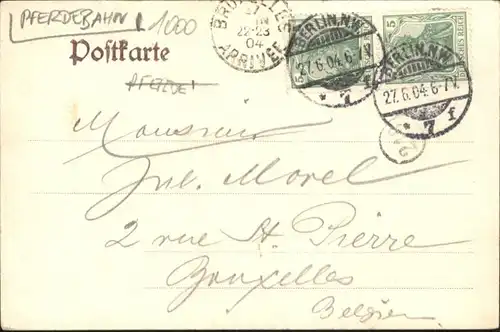 PFERDEBAHN 1000
Postkarte
PFERDE!
BRUXELLES
22-23
04
ARRIVEE
BERLIN, N.W.
27.6.04.6-7V.
* 7 f
5
BERLIN, N.W.
27.6.04.6-7V.
* 7 f
5
Monsieur
Jul. Morel
2 rue St. Pierre
Bruxelles
Belgien